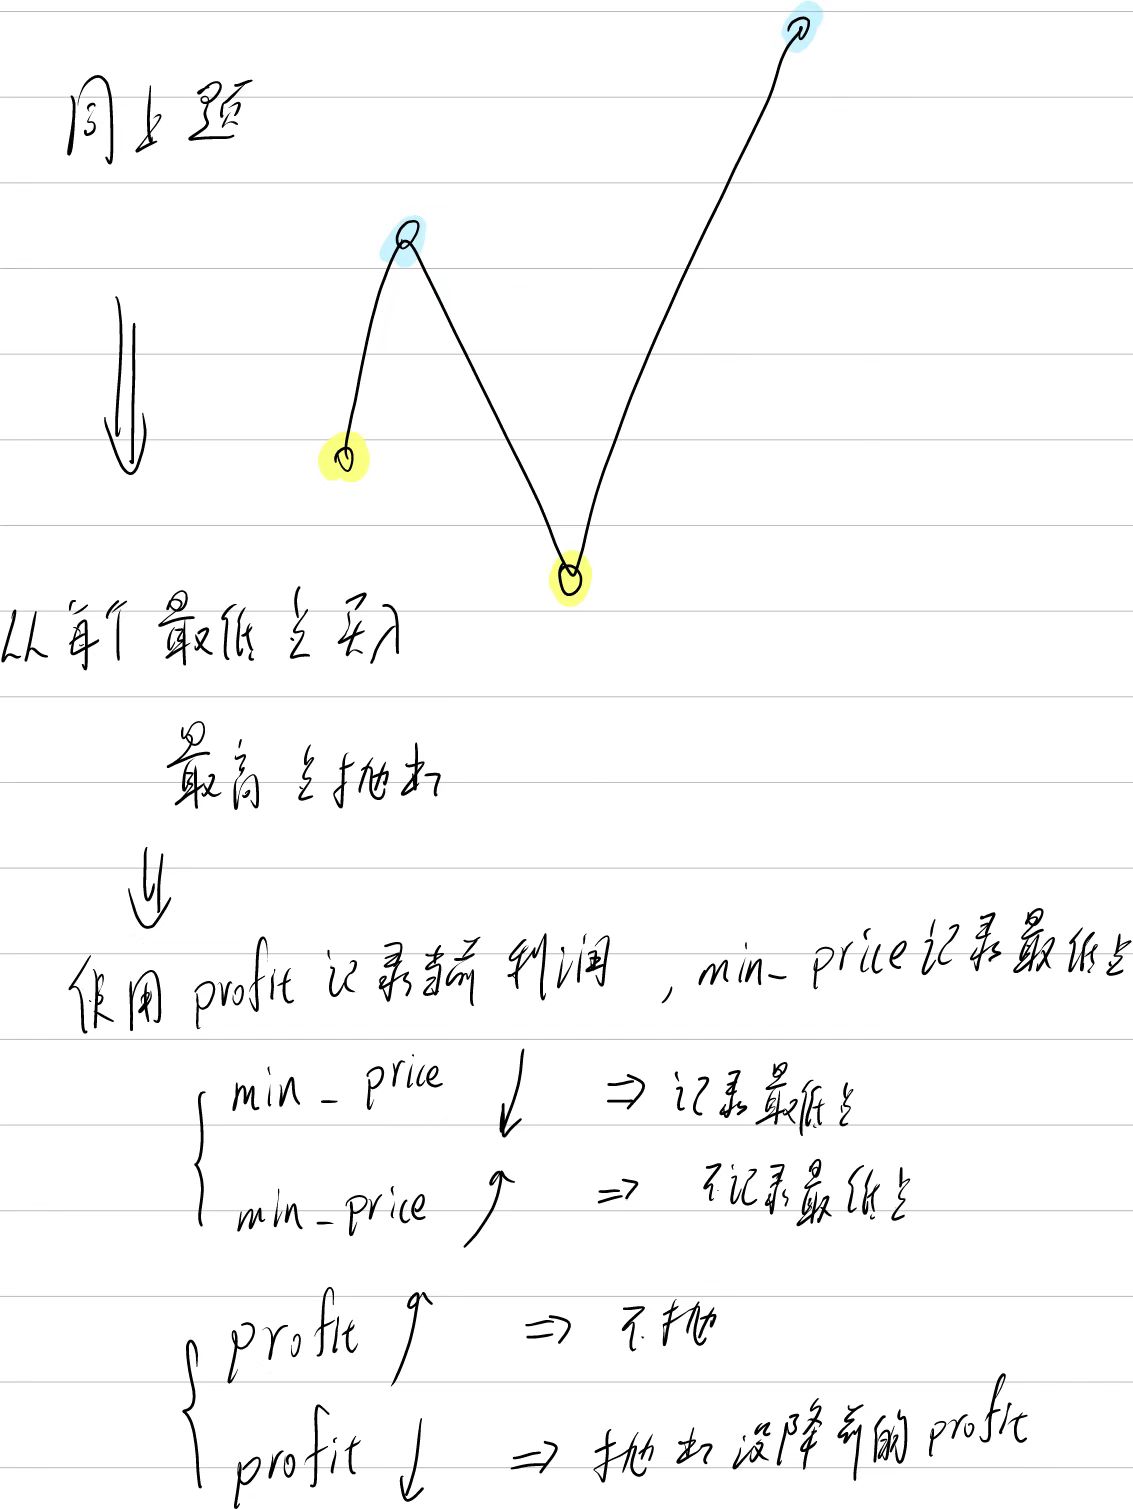 同上题
从每个最低点买入
最高点抛出
使用 profit 记录当前利润，min_price记录最低点
min_price ↓ ⇒ 记录最低点
min_price ↗ ⇒ 不记录最低点
profit ↗ ⇒ 不抛
profit ↓ ⇒ 抛出没降前的 profit